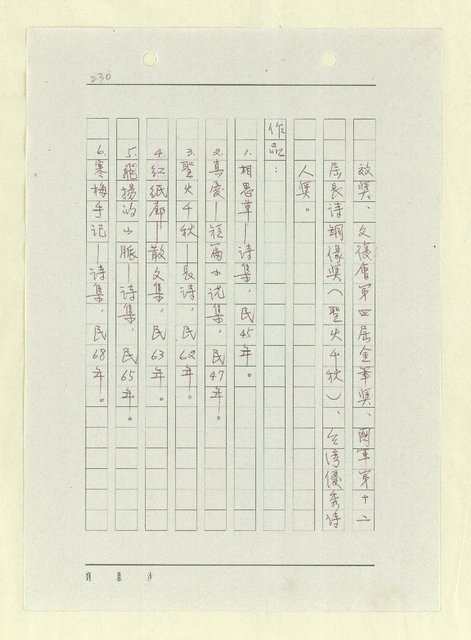 230
效獎、文復會第四屆金筆獎、國軍第十二
屆長詩銅像獎（聖火千秋）、台灣優秀詩
人獎。
作品：
1. 相思草—詩集，民45年。
2. 真愛—短篇小說集，民47年。
3. 聖火千秋—長詩，民62年。
4. 紅紙廊—散文集，民63年。
5. 飛揚的山脈—詩集，民65年。
6. 寒梅手記—詩集，民68年。